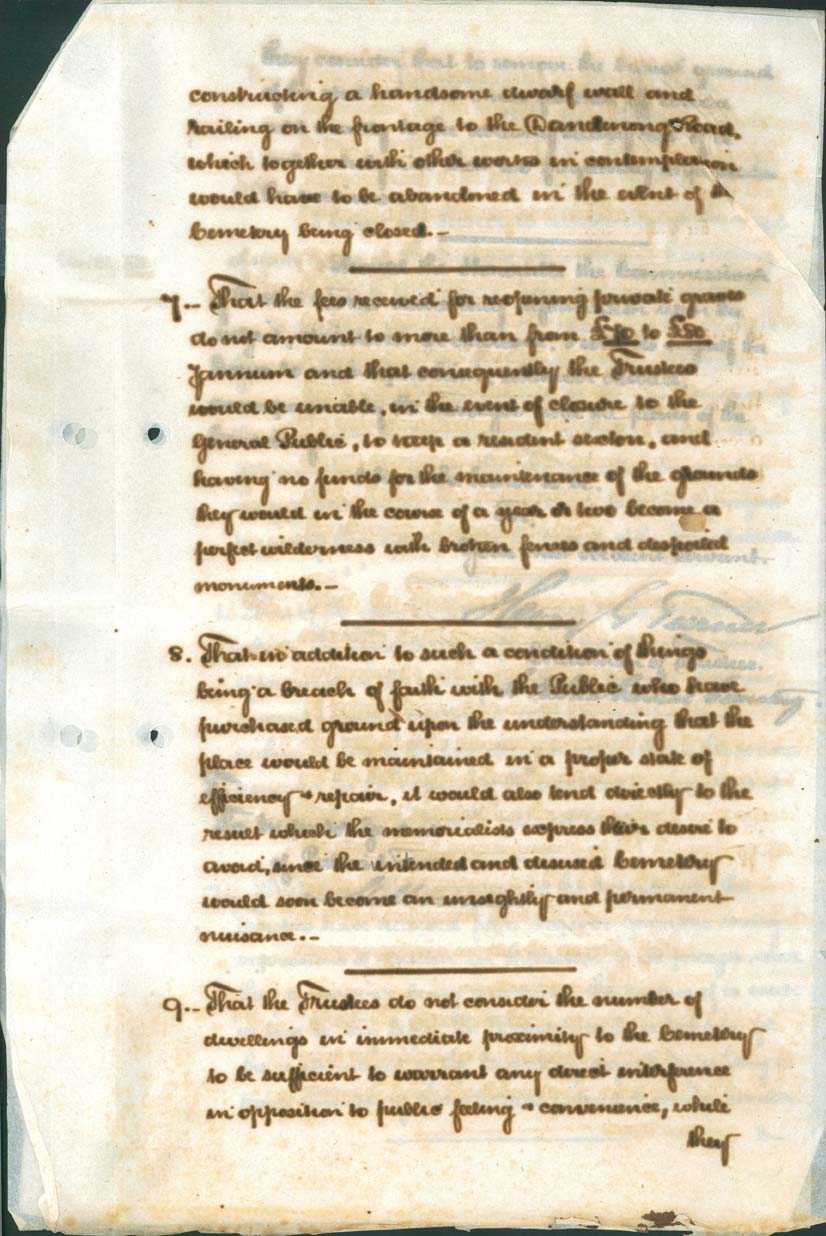 constructing a handsome dwarf wall and
railing on the frontage to the Dandenong Road,
which together with other works in contemplation
would have to be abandoned in the event of the
Cemetery being closed.—
7.— That the fees received for reopening private graves
do not amount to more than from to £80
annum and that consequently the Trustees
would be unable, in the event of closure to the
General Public, to keep a resident sexton, and
having no funds for the maintenance of the grounds
they would in the course of a year or two become a
perfect wilderness with broken fences and despoiled
monuments.—
8. That in addition to such a condition of things
being a breach of faith with the Public who have
purchased ground upon the understanding that the
place would be maintained in a proper state of
efficiency & repair, it would also tend directly to the
result which the memorialists express their desire to
avoid, since the untended and disused Cemetery
would soon become an unsightly and permanent
nuisance.—
9.— That the Trustees do not consider the number of
dwellings in immediate proximity to the Cemetery
to be sufficient to warrant any direct interference
in opposition to public feeling & convenience, while
they